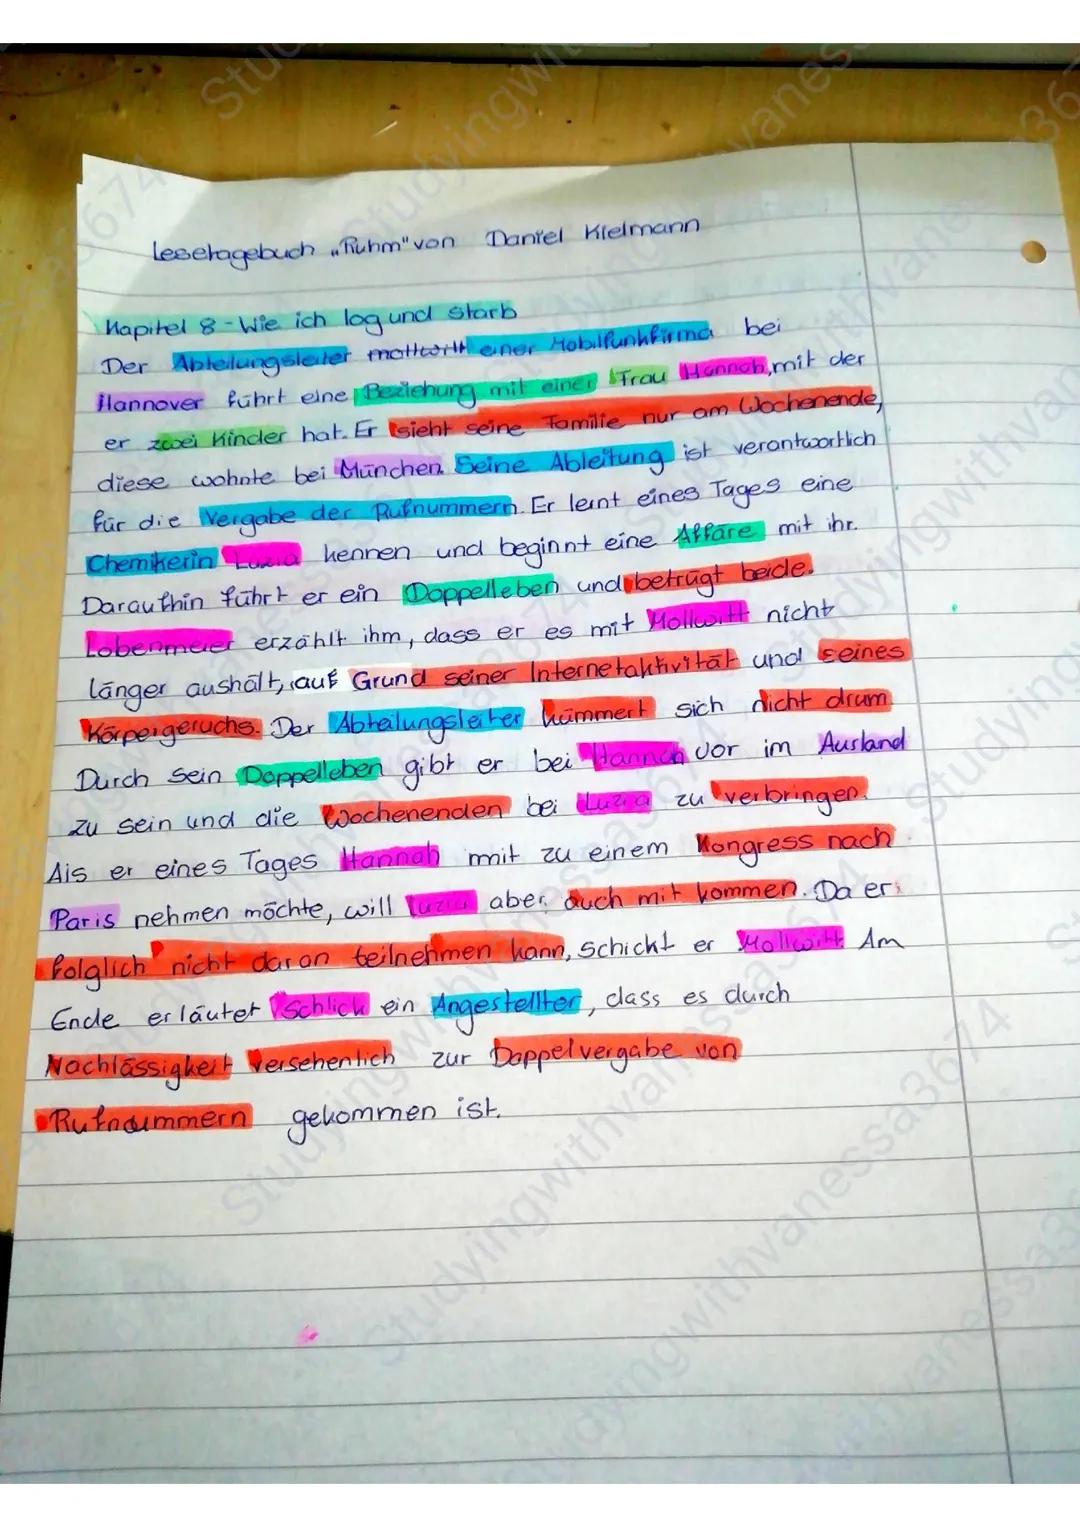 Lesetagebuch „Ruhm" von Daniel Klelmann
Kapitel 8 - Wie ich log und starb
Der Abteilungsleiter einer Mobilfunkfirma bei
Hannover führt eine Beziehung mit einer Frau Hannah, mit der
er zwei Kinder hat. Er sieht seine Familie nur am Wochenende,
diese wohnte bei München. Seine Ableitung ist verantwortlich
für die Vergabe der Rufnummern. Er lernt eines Tages eine
Chemikerin Luzia kennen und beginnt eine Affäre mit ihr.
Daraufhin führt er ein Doppelleben und betrügt beide.
Lobenmeier erzählt ihm, dass er es mit Mollwitt nicht
länger aushält, auf Grund seiner Internetaktivität und seines
Körpergeruchs. Der Abteilungsleiter kümmert sich nicht drum.
Durch sein Doppelleben gibt er bei Hannah vor im Ausland
zu sein und die Wochenenden bei Luzia zu verbringen.
Als er eines Tages Hannah mit zu einem Kongress nach
Paris nehmen möchte, will Luzia aber auch mit kommen. Da er
folglich nicht daran teilnehmen kann, schickt er Mollwitt. Am
Ende erläutet Schlick ein Angestellter, dass es durch
Nachlässigkeit versehenlich zur Doppelvergabe von
Rufnummern gekommen ist.
Studyingwithvanessa3674